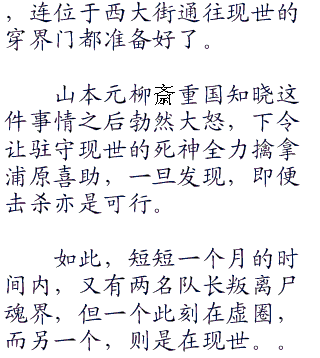 ，连位于西大街通往现世的
穿界门都准备好了。
山本元柳斎重国知晓这
件事情之后勃然大怒，下令
让驻守现世的死神全力擒拿
浦原喜助，一旦发现，即便
击杀亦是可行。
如此，短短一个月的时
间内，又有两名队长叛离尸
魂界，但一个此刻在虚圈，
而另一个，则是在现世。。